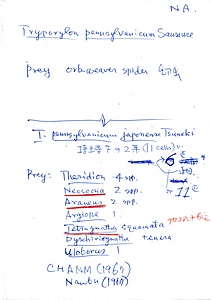 NA.
Trypoxylon pennsylvanicum Saussure
prey orb-weaver spider
T. pennsylvanicum japonense Tsuneki
2 (11 cells)
6
11
Prey: Theridion 4 spp.
Neoscona 2 spp.
Araneus 2 spp.
Argiope 1.
Tetragnatha squamata
Dyschiriognatha tenera
Uloborus 1
CHANM (1967)
Nambu (1967)